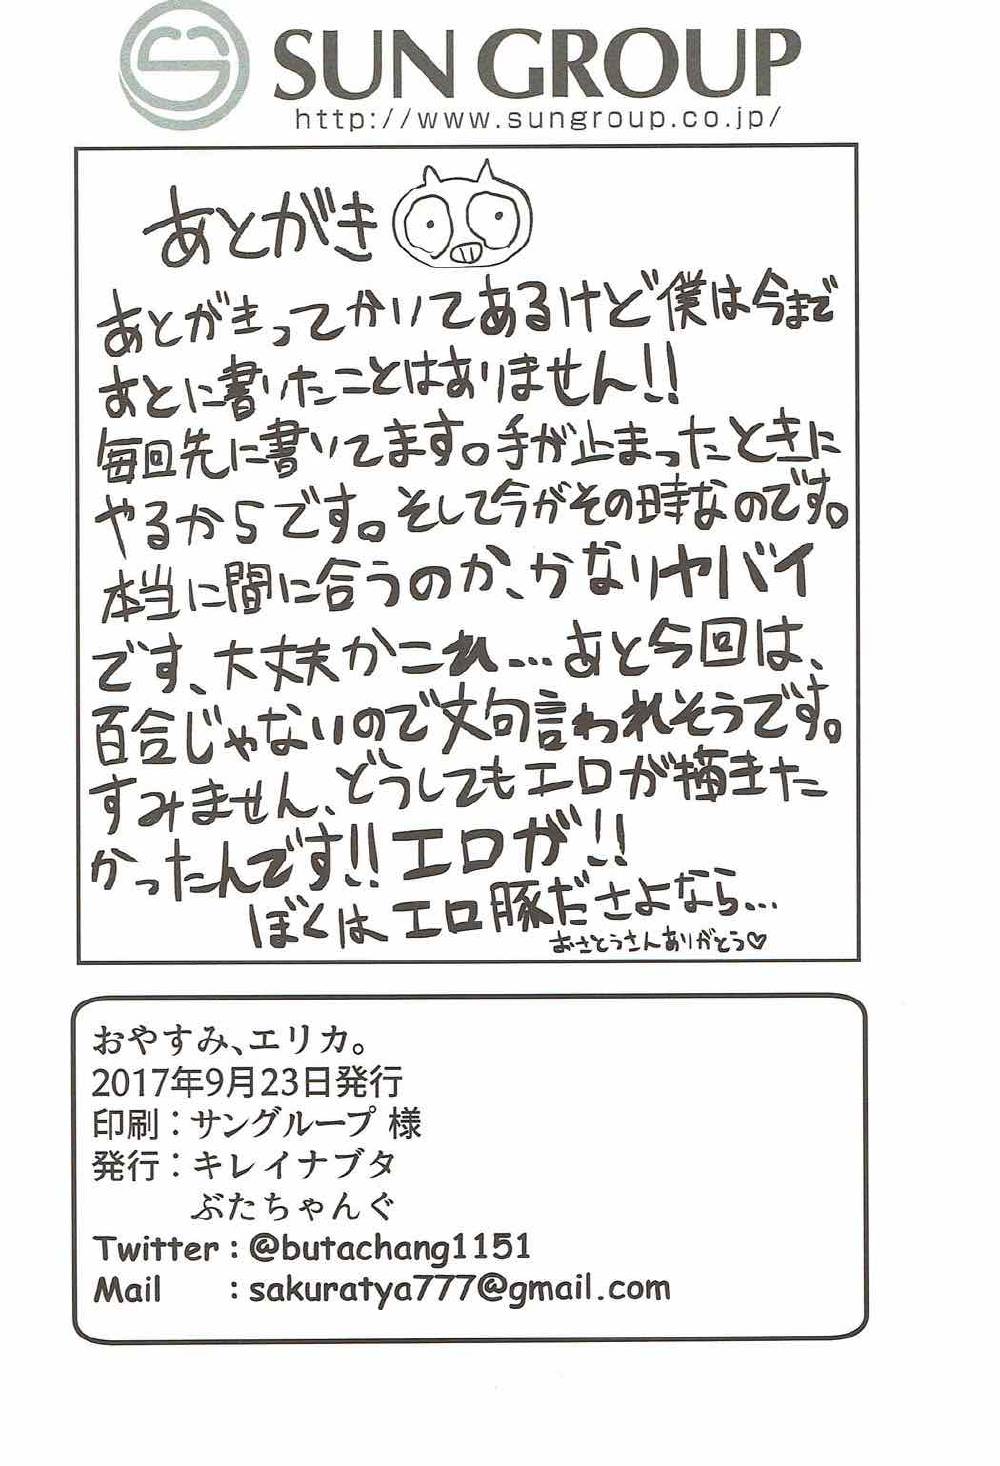 SUN GROUP
http://www.sungroup.co.jp/
あとがき
あとがきってかいてあるけど僕は今まで
あとに書いたことはありません!!
毎回先に書いてます。手が止まったときに
やるからです。そして今がその時なのです。
本当に間に合うのか、かなりヤバイ
です、大丈夫かこれ…あと今回は、
百合じゃないので文句言われそうです。
すみません、どうしてもエロが描きた
かったんです!!エロが!!
ぼくはエロ豚ださよなら…
おさとうさんありがとう♡
おやすみ、エリカ。
2017年9月23日発行
印刷：サングループ 様
発行：キレイナブタ
ぶたちゃんぐ
Twitter：@butachang1151
Mail ：sakuratya777@gmail.com